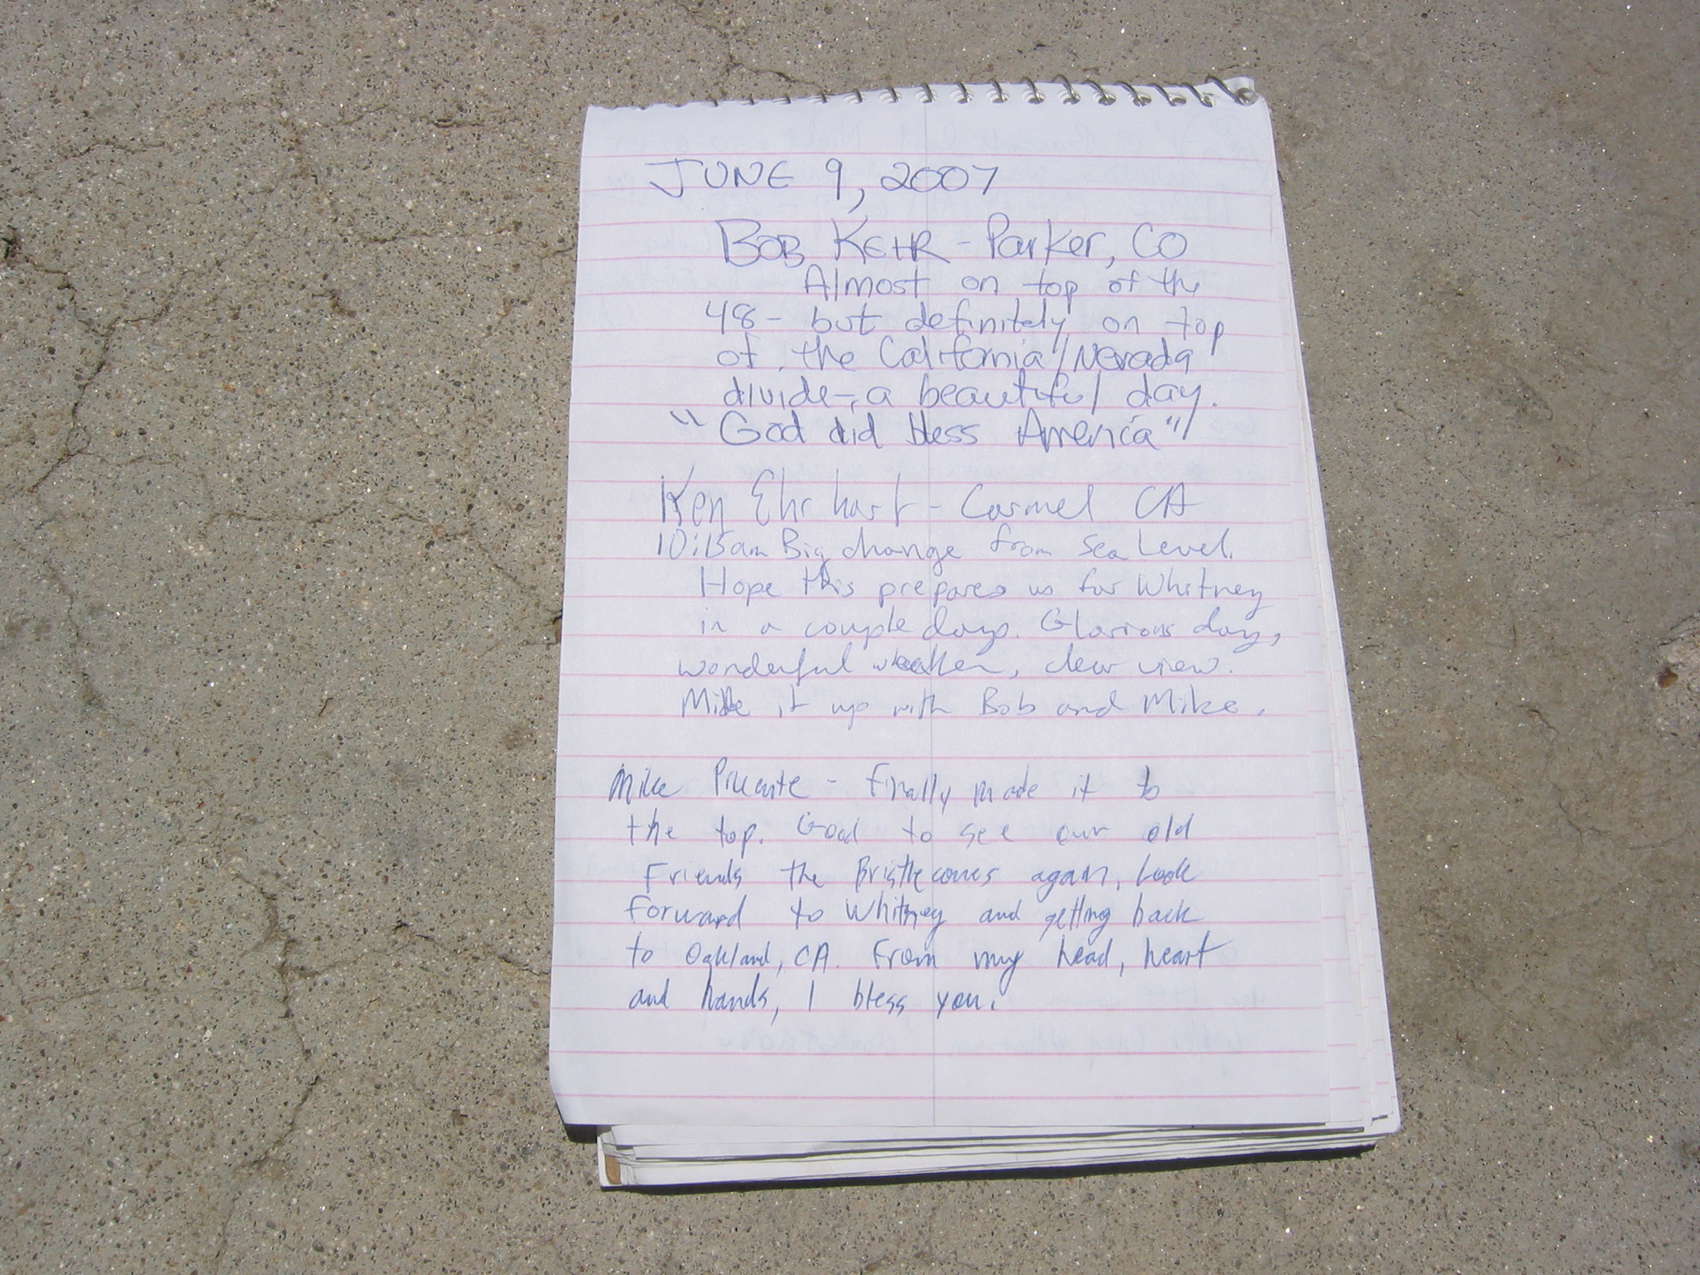 JUNE 9, 2007
BOB KEHR - Parker, CO
Almost on top of the
48 - but definitely on top
of the California/Nevada
divide - a beautiful day.
"God did bless America"
Ken Ehrhart - Carmel CA
10:15am Big change from Sea Level.
Hope this prepares us for Whitney
in a couple days. Glorious day,
wonderful weather, clear view.
it up with Bob and Mike.
Mike - Finally made it to
the top. Good to see our old
Friends the Bristlecones again, Look
forward to Whitney and getting back
to Oakland, CA. From my head, heart
and hands, I bless you.